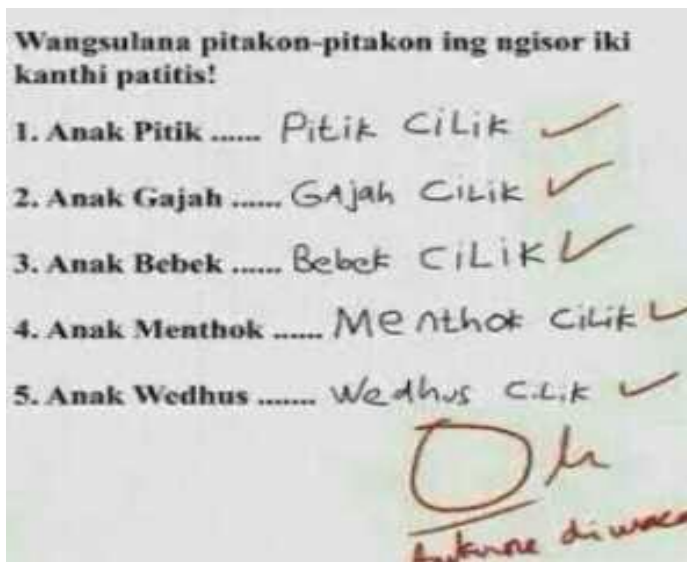 Wangsulana pitakon-pitakon ing ngisor iki
kanthi patitis!
1. Anak Pitik ...... Pitik CiLik
2. Anak Gajah ...... GAjah CiLik
3. Anak Bebek ...... Bebek CiLik
4. Anak Menthok ...... Menthok CiLik
5. Anak Wedhus ....... Wedhus CiLik
O
diwaca